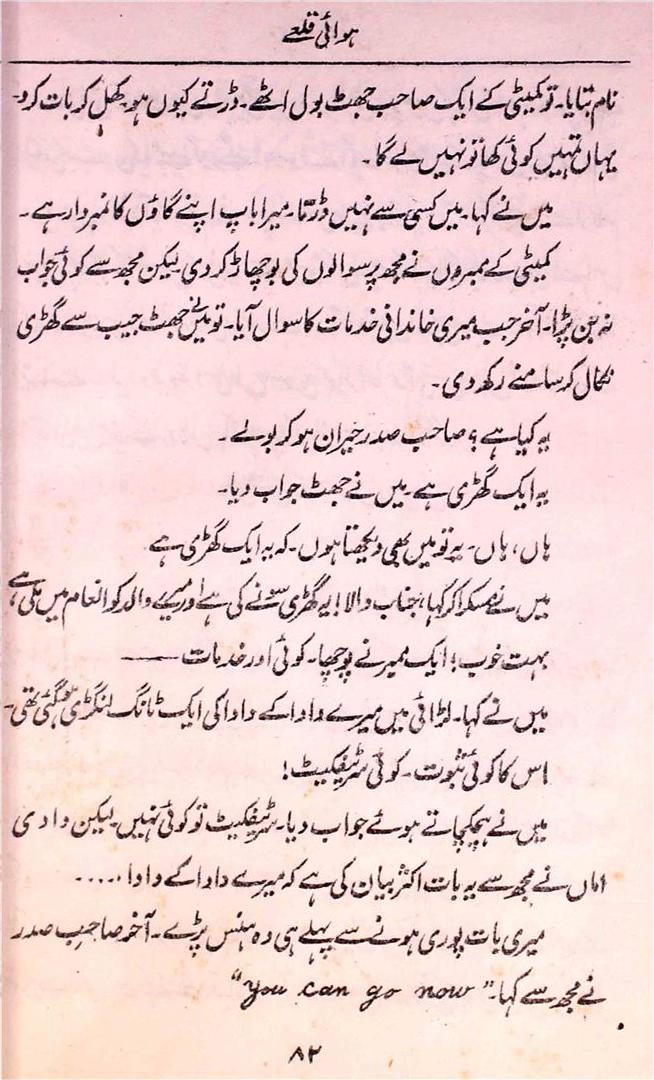 ہوائی قلعے
نام بتایا۔ تو کمیٹی کے ایک صاحب جھٹ بول اٹھے۔ ڈرتے کیوں ہو کھل کر بات کرو۔
یہاں تمہیں کوئی کھا تو نہیں لے گا۔
میں نے کہا۔ میں کسی سے نہیں ڈرتا۔ میرا باپ اپنے گاؤں کا نمبردار ہے۔
کمیٹی کے ممبروں نے مجھ پر سوالوں کی بوچھاڑ کر دی لیکن مجھ سے کوئی جواب
نہ بن پڑا۔ آخر جب میری خاندانی خدمات کا سوال آیا۔ تو میں نے جھٹ جیب سے گھڑی
نکال کر سامنے رکھ دی۔
یہ کیا ہے؟ صاحب صدر حیران ہو کر بولے۔
یہ ایک گھڑی ہے۔ میں نے جھٹ جواب دیا۔
ہاں، ہاں۔ یہ تو میں بھی دیکھتا ہوں۔ کہ یہ ایک گھڑی ہے
میں نے مسکرا کر کہا، جناب والا! یہ گھڑی سونے کی ہے اور میرے والد کو انعام میں ملی ہے،
بہت خوب! ایک ممبر نے پوچھا۔ کوئی اور خدمات ——
میں نے کہا۔ لڑائی میں میرے دادا کے دادا کی ایک ٹانگ لنگڑی ہو گئی تھی۔
اس کا کوئی ثبوت۔ کوئی سرٹیفکیٹ!
میں نے ہچکچاتے ہوئے جواب دیا۔ سرٹیفکیٹ تو کوئی نہیں۔ لیکن دادی
اماں نے مجھ سے یہ بات اکثر بیان کی ہے کہ میرے دادا کے دادا.....
میری بات پوری ہونے سے پہلے ہی وہ ہنس پڑے۔ آخر صاحب صدر
نے مجھ سے کہا۔ "you can go now"
۸۲